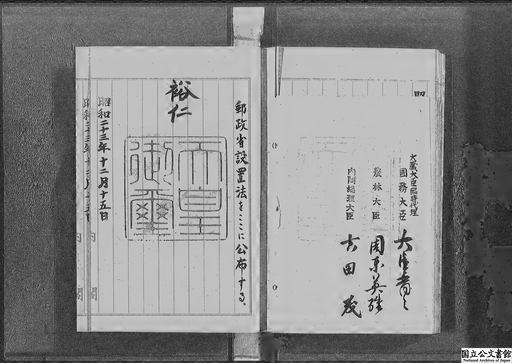 大蔵大臣臨時代理
国務大臣 大屋晋三
農林大臣 周東英雄
内閣総理大臣 吉田茂
郵政省設置法をここに公布する。
裕仁
天皇御璽
昭和二十三年十二月十五日
内閣
国立公文書館
National Archives of Japan